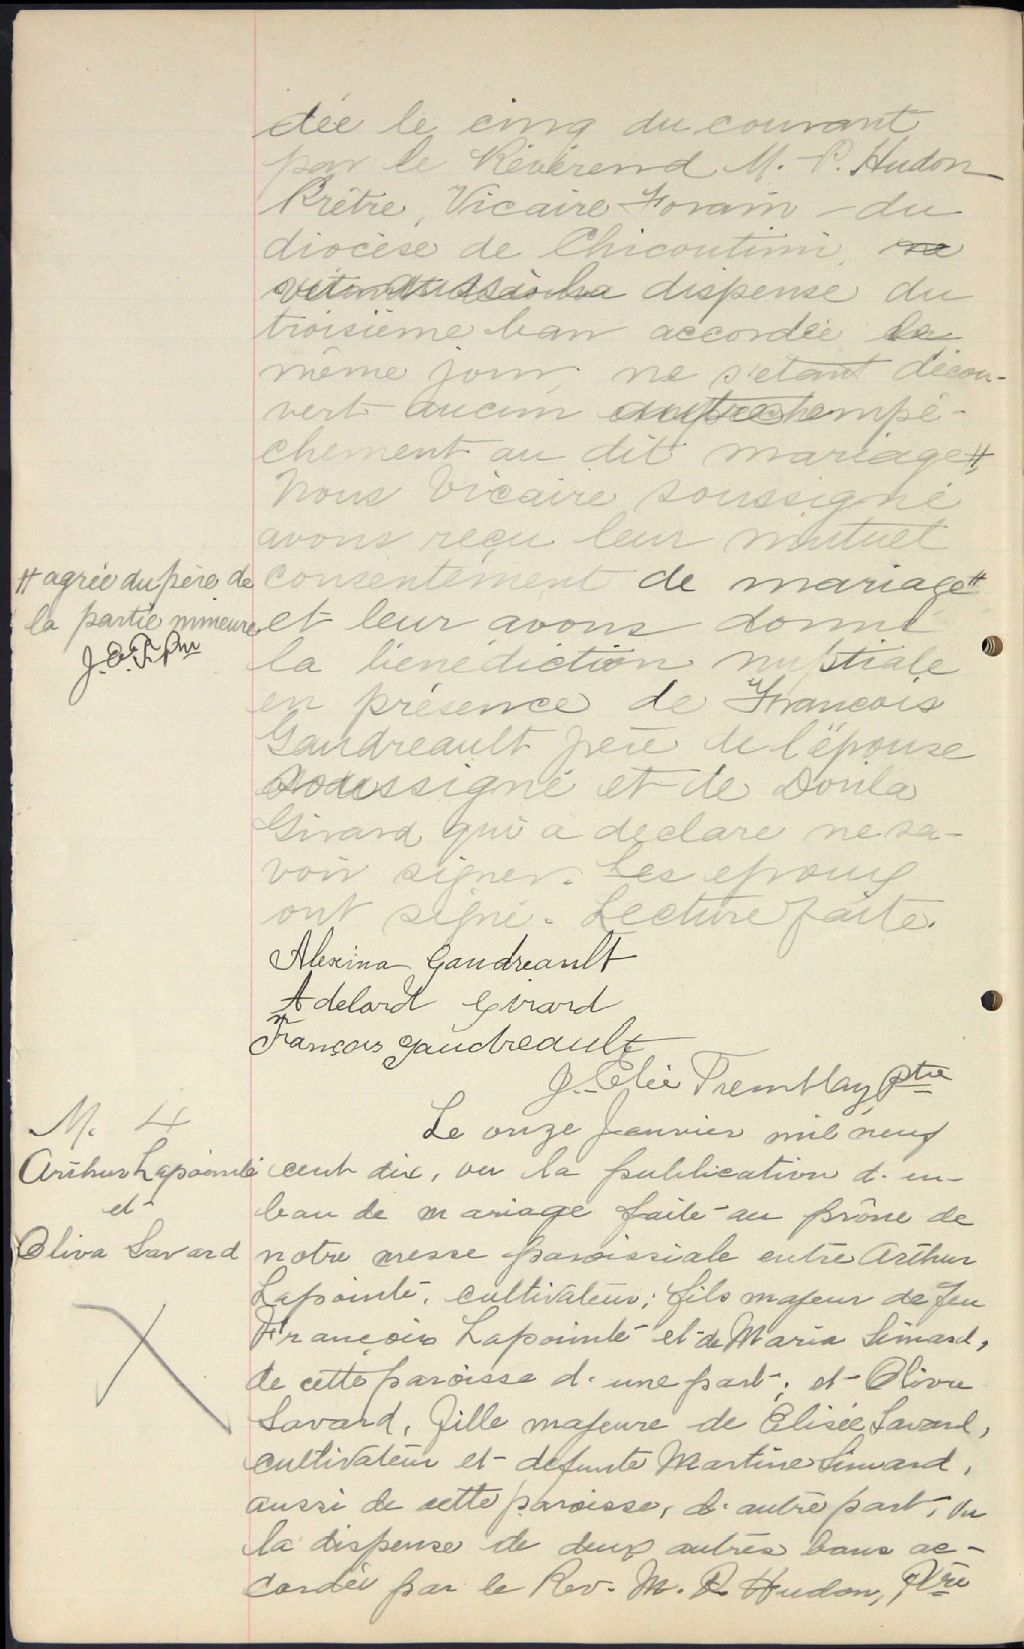 dée le cinq du courant
par le Révérend M. P. Hudon
Prêtre, Vicaire Forain du
diocèse de Chicoutimi,
dispense du
troisième ban accordée le
même jour, ne s'etant décou-
vert aucun empê-
chement au dit mariage #,
Nous Vicaire soussigné
avons reçu leur mutuel
consentement de mariage #
# agrée du père de
la partie mineure
J. E. T. Ptre
et leur avons donné
la bénédiction nuptiale
en présence de François
Gaudreault père de l'épouse
soussigné et de Donila
Girard qui a declare ne sa-
voir signer. Les epoux
ont signé. Lecture faite.
Alexina Gaudreault
Adelard Girard
François Gaudreault
J. Elie Tremblay Ptre
M. 4
Arthur Lapointe
et
Oliva Savard
Le onze Janvier mil neuf
cent dix, vu la publication d'un
ban de mariage faite au prône de
notre messe paroissiale entre Arthur
Lapointe, cultivateur; fils majeur de feu
François Lapointe et de Maria Simard,
de cette paroisse d'une part; et Oliva
Savard, fille majeure de Élisée Savard,
cultivateur et defunte Martine Simard,
aussi de cette paroisse, d'autre part; vu
la dispense de deux autres bans ac-
cordée par le Rev. M. P. Hudon, Ptre